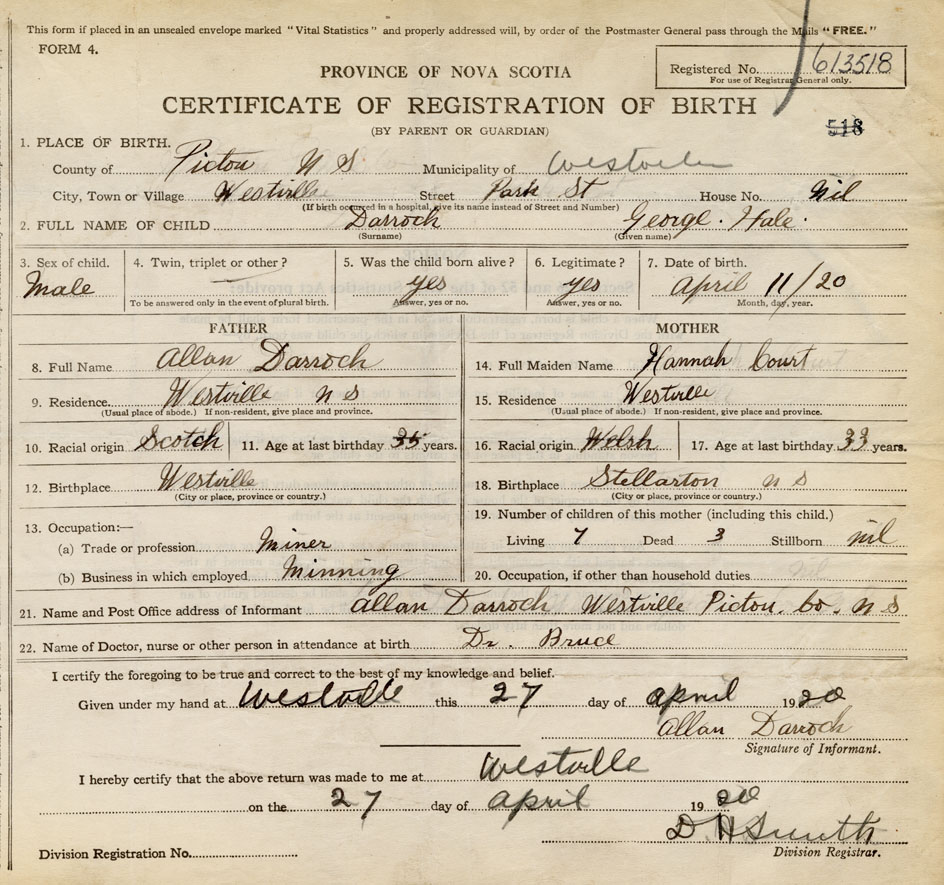 This form if placed in an unsealed envelope marked "Vital Statistics" and properly addressed will, by order of the Postmaster General pass through the Mails "FREE."
FORM 4.
Registered No. 613518
For use of Registrar General only.
PROVINCE OF NOVA SCOTIA
CERTIFICATE OF REGISTRATION OF BIRTH
(BY PARENT OR GUARDIAN)
518
1. PLACE OF BIRTH.
County of Pictou N S Municipality of Westville
City, Town or Village Westville Street Park St House No. Nil
(If birth occurred in a hospital, give its name instead of Street and Number)
2. FULL NAME OF CHILD Darroch George. Hale.
(Surname) (Given name)
3. Sex of child. 4. Twin, triplet or other? 5. Was the child born alive? 6. Legitimate? 7. Date of birth.
Male — yes yes April 11/20
To be answered only in the event of plural birth. Answer, yes or no. Answer, yes or no. Month, day, year.
FATHER MOTHER
8. Full Name Allan Darroch 14. Full Maiden Name Hannah Court
9. Residence. Westville n s 15. Residence Westville
(Usual place of abode.) If non-resident, give place and province. (Usual place of abode.) If non-resident, give place and province.
10. Racial origin Scotch 11. Age at last birthday 35 years. 16. Racial origin Welsh 17. Age at last birthday 33 years.
12. Birthplace Westville 18. Birthplace Stellarton n s
(City or place, province or country.) (City or place, province or country.)
13. Occupation:— 19. Number of children of this mother (including this child.)
(a) Trade or profession Miner Living 7 Dead 3 Stillborn nil
(b) Business in which employed Minning 20. Occupation, if other than household duties. nil
21. Name and Post Office address of Informant Allan Darroch Westville Pictou. Co. n s
22. Name of Doctor, nurse or other person in attendance at birth Dr. Bruce
I certify the foregoing to be true and correct to the best of my knowledge and belief.
Given under my hand at Westville this 27 day of April 1920
Allan Darroch
Signature of Informant.
I hereby certify that the above return was made to me at Westville
on the 27 day of April 1920
D H Smith
Division Registrar.
Division Registration No.